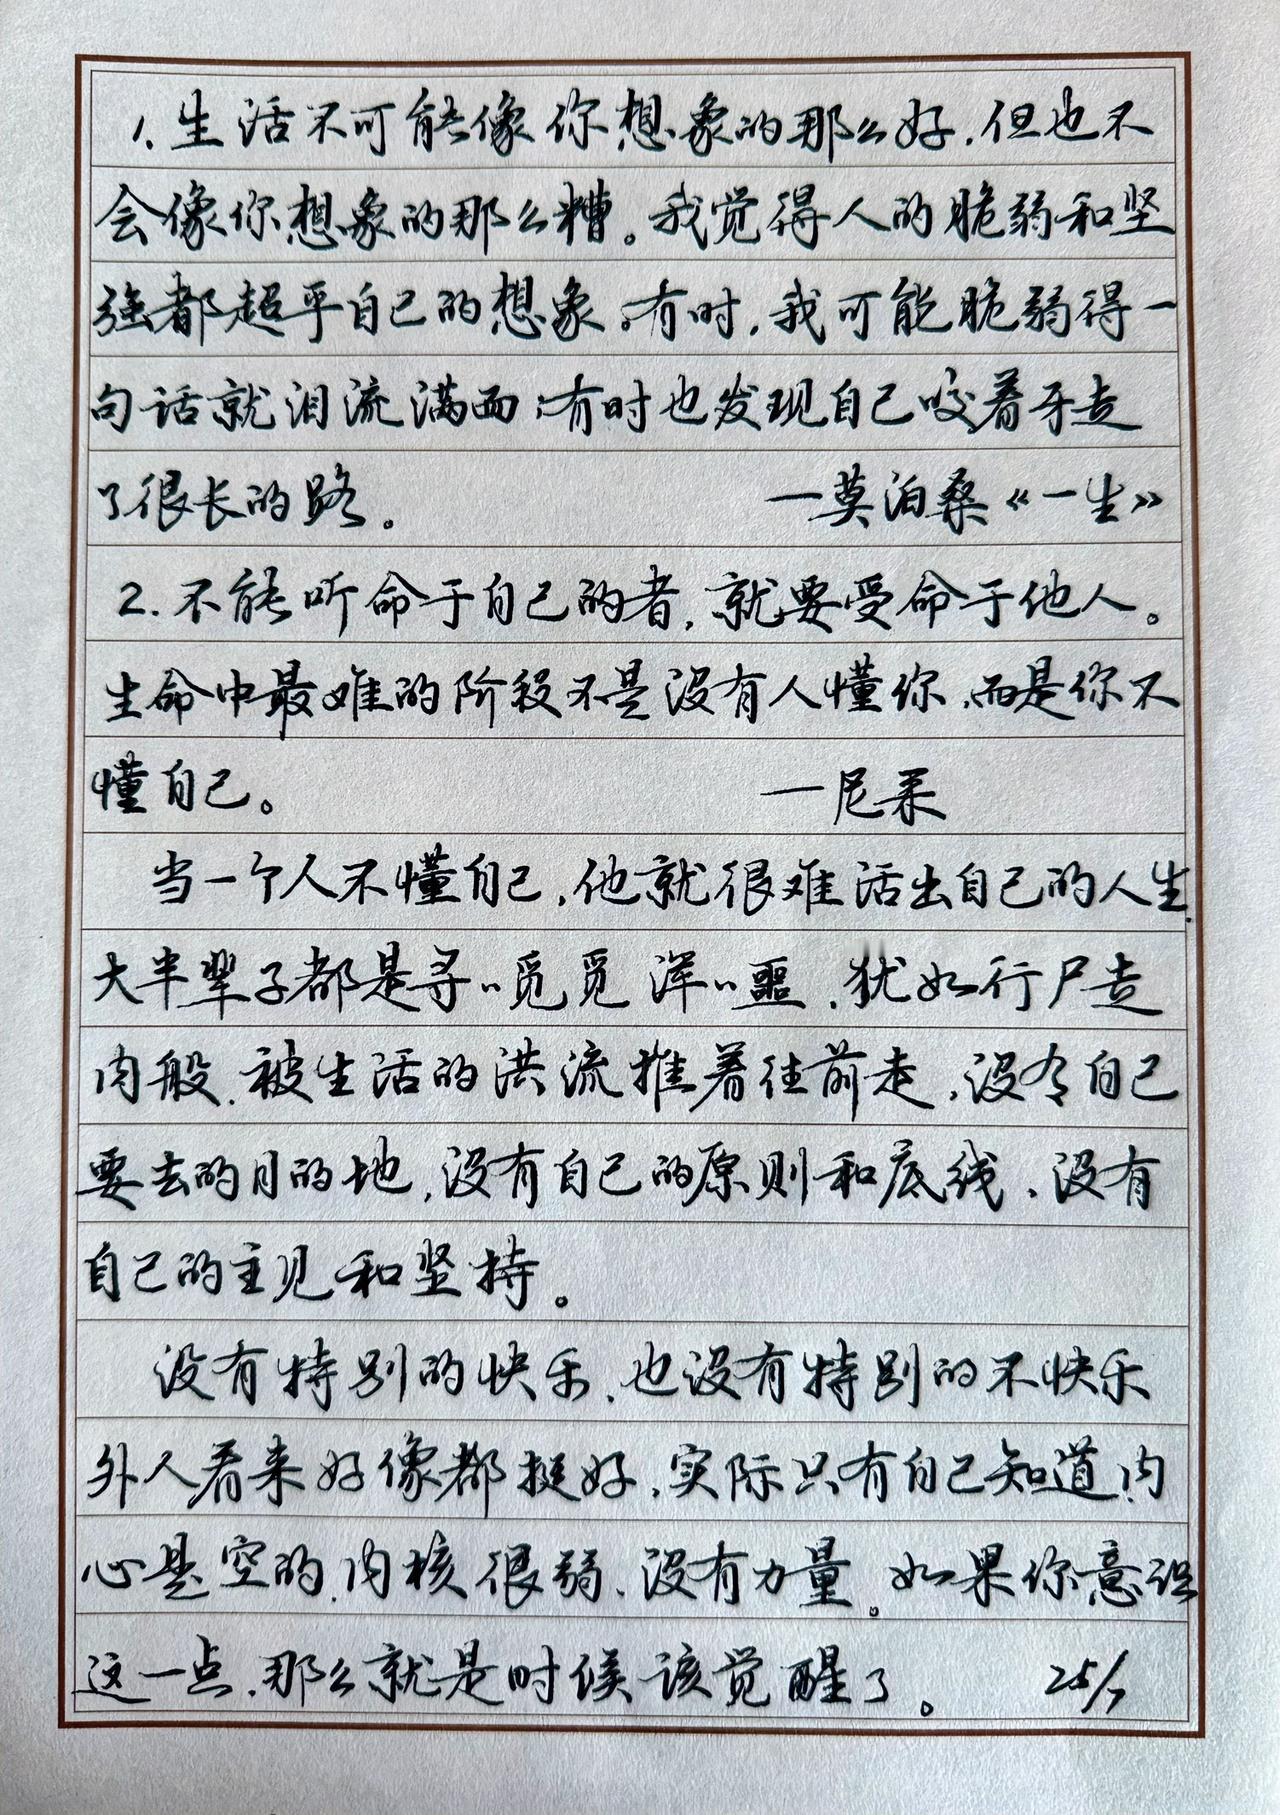 1、生活不可能像你想象的那么好,但也不
会像你想象的那么糟。我觉得人的脆弱和坚
强都超乎自己的想象。有时,我可能脆弱得一
句话就泪流满面;有时也发现自己咬着牙走
了很长的路。 —莫泊桑《一生》
2.不能听命于自己的者,就要受命于他人。
生命中最难的阶段不是没有人懂你,而是你不
懂自己。 —尼采
当一个人不懂自己,他就很难活出自己的人生,
大半辈子都是寻〃觅觅 浑〃噩,犹如行尸走
肉般,被生活的洪流推着往前走,没有自己
要去的目的地,没有自己的原则和底线、没有
自己的主见和坚持。
没有特别的快乐,也没有特别的不快乐
外人看来好像都挺好,实际只有自己知道,内
心是空的,内核很弱、没有力量。如果你意识
这一点,那么就是时候该觉醒了。 25/7